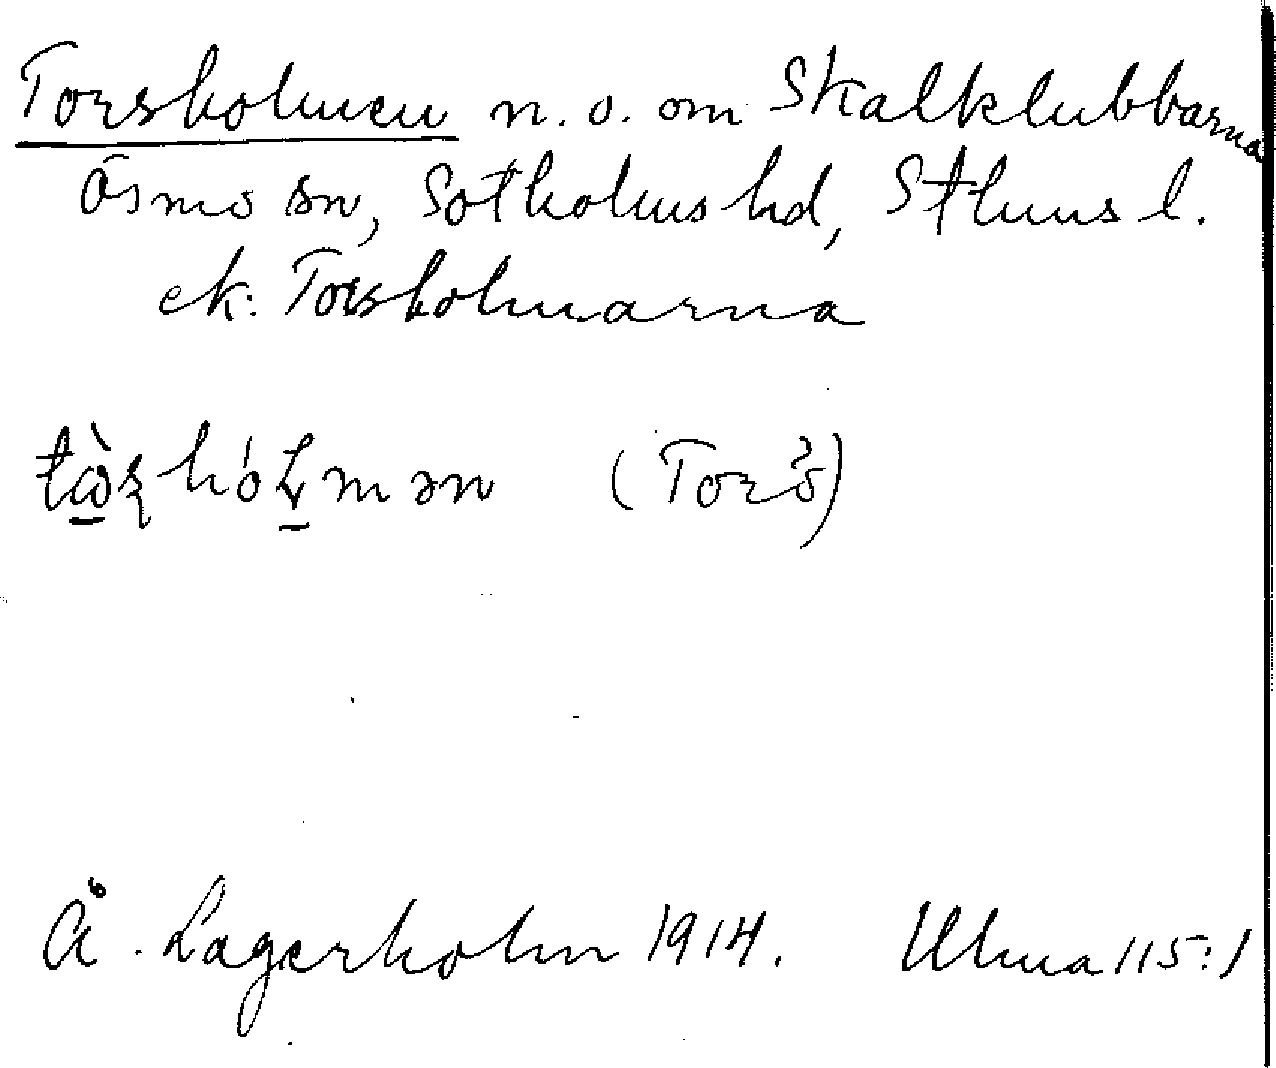 Torsholmen n.o. om Skalklubbarna
Ösmo sn, Sotholms hd, Sthms l.
ek: Torsholmarna
(Torö)
Å. Lagerholm 1914. Ulma 115:1